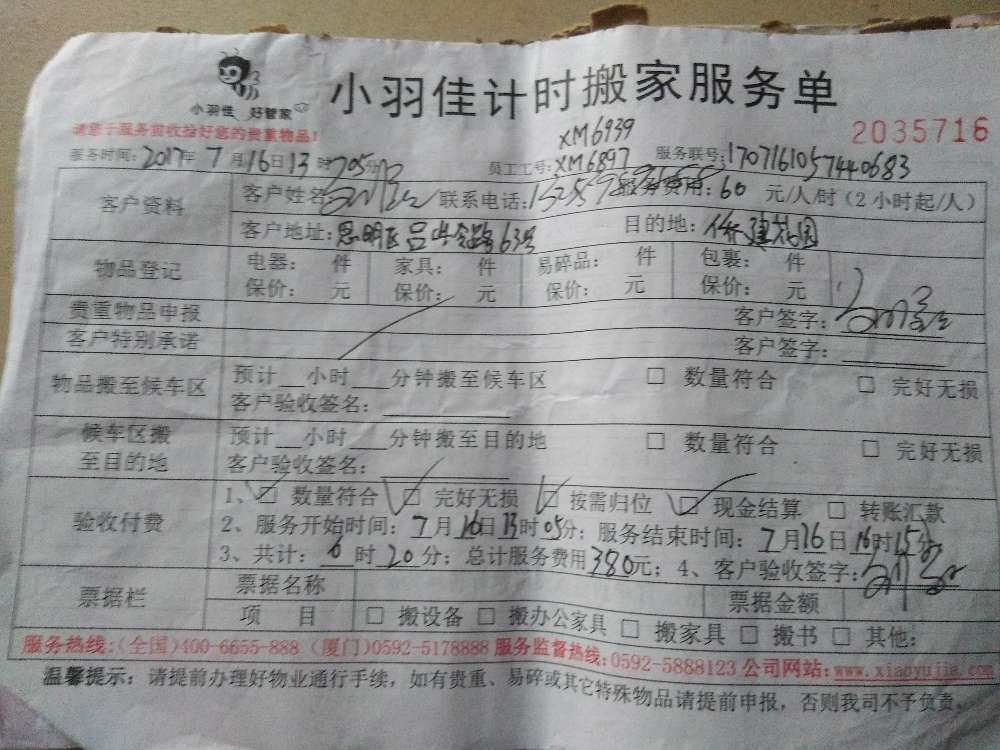 小羽佳 好管家
小羽佳计时搬家服务单
请您于服务前收拾好您的贵重物品！
XM6939
2035716
服务时间：2017年7月16日13时05分 员工工号：XM6897 服务联号：17071610574440683
客户资料 客户姓名 联系电话： 服务费用：60 元/人/时（2小时起/人）
客户地址：思明区吕岭路63号 目的地：侨建花园
物品登记 电器： 件 家具： 件 易碎品： 件 包裹： 件
保价： 元 保价： 元 保价： 元 保价： 元
贵重物品申报 客户签字：
客户特别承诺 客户签字：
物品搬至候车区 预计__小时___分钟搬至候车区 □ 数量符合 □ 完好无损
客户验收签名：
候车区搬至目的地 预计__小时___分钟搬至目的地 □ 数量符合 □ 完好无损
客户验收签名：
验收付费 1、☑ 数量符合 ☑ 完好无损 ☑ 按需归位 ☑ 现金结算 □ 转账汇款
2、服务开始时间：7月16日13时05分；服务结束时间：7月16日16时15分
3、共计：6时20分；总计服务费用380元；4、客户验收签字：
票据栏 票据名称 票据金额
项 目 □ 搬设备 □ 搬办公家具 □ 搬家具 □ 搬书 □ 其他：
服务热线：（全国）400-6655-888（厦门）0592-5178888 服务监督热线：0592-5888123 公司网站：www.xiaoyujia.com
温馨提示：请提前办理好物业通行手续，如有贵重、易碎或其它特殊物品请提前申报，否则我司不予负责。